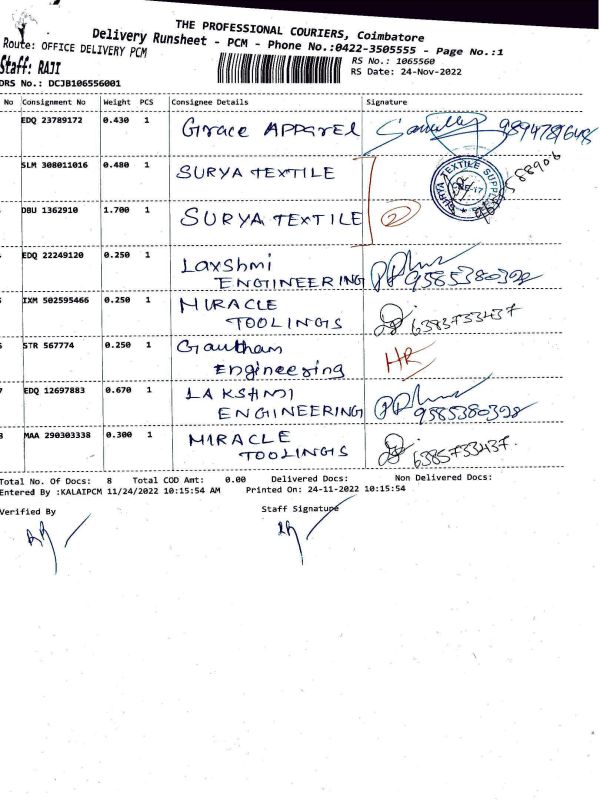 THE PROFESSIONAL COURIERS, Coimbatore
Delivery Runsheet - PCM - Phone No.:0422-3505555 - Page No.:1
Route: OFFICE DELIVERY PCM
RS No.: 1065560
Staff: RAJI
RS Date: 24-Nov-2022
DRS No.: DCJB106556001
No Consignment No Weight PCS Consignee Details Signature
EDQ 23789172 0.430 1 Grace APPAREL
SLM 308011016 0.480 1 SURYA TEXTILE
DBU 1362910 1.700 1 SURYA TEXTILE 2
EDQ 22249120 0.250 1 Laxshmi
ENGINEERING 9585380398
5 IXM 502595466 0.250 1 MIRACLE
TOOLINGS 6383733437
6 STR 567774 0.250 1 Gautham
Engineering HR
7 EDQ 12697883 0.670 1 LAKSHMI
ENGINEERING 9585380398
8 MAA 290303338 0.300 1 MIRACLE
TOOLINGS
Total No. Of Docs: 8 Total COD Amt: 0.00 Delivered Docs: Non Delivered Docs:
Entered By :KALAIPCM 11/24/2022 10:15:54 AM Printed On: 24-11-2022 10:15:54
Verified By Staff Signature